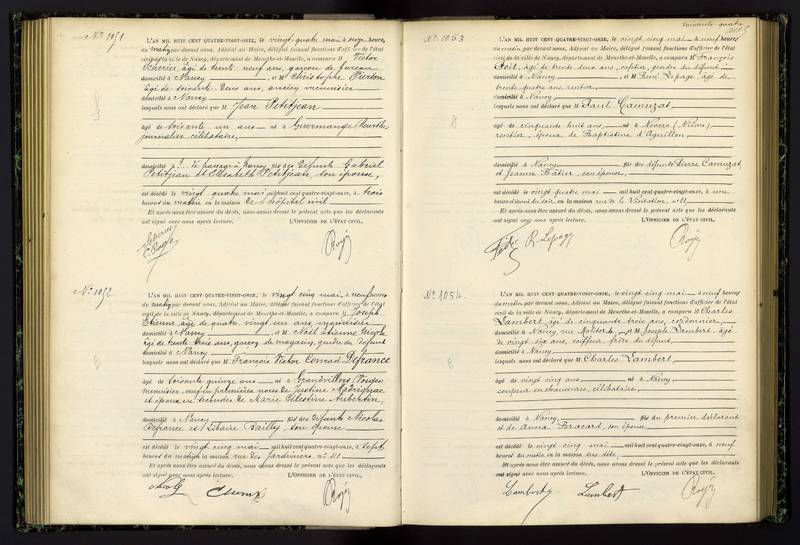 N° 1051
L'AN MIL HUIT CENT QUATRE-VINGT-ONZE, le vingt quatre mai à onze heures,
du matin par devant nous, Adjoint au Maire, délégué faisant fonctions d'officier de l'état
civil de la ville de Nancy, département de Meurthe-et-Moselle, a comparu M Victor
âgé de trente neuf ans, garçon de bureau
domicilié à Nancy et M Christophe
âgé de soixante deux ans, ancien menuisier
domicilié à Nancy
lesquels nous ont déclaré que M Jean Petitjean
âgé de soixante un ans né à Guermange Meurthe
journalier célibataire,
domicilié à de passage à Nancy fils des défunts Gabriel
Petitjean et Elisabeth Petitjean, son épouse,
est décédé le vingt quatre mai mil huit cent quatre-vingt-onze, à trois
heures du matin en la maison de l'hôpital civil
Et après nous être assuré du décès, nous avons dressé le présent acte que les déclarants
ont signé avec nous après lecture. L'OFFICIER DE L'ÉTAT CIVIL,
N° 1052
L'AN MIL HUIT CENT QUATRE-VINGT-ONZE, le vingt cinq mai à neuf heures
du matin par devant nous, Adjoint au Maire, délégué faisant fonctions d'officier de l'état
civil de la ville de Nancy, département de Meurthe-et-Moselle, a comparu M Joseph
Etienne, âgé de quatre vingt un ans menuisier
domicilié à Nancy et M Noël Etienne
âgé de trente trois ans, garçon de magasin, gendre du défunt
domicilié à Nancy
lesquels nous ont déclaré que M François Victor Conrad Defrance
âgé de soixante quinze ans né à Grandvillers (Vosges)
menuisier veuf en premières noces de Justine
et époux en secondes de Marie Célestine Aubertin,
domicilié à Nancy fils des défunts Nicolas
Defrance et Libaire son épouse
est décédé le vingt cinq mai mil huit cent quatre-vingt-onze, à sept
heures du matin en la maison rue des Jardiniers n° 41
Et après nous être assuré du décès, nous avons dressé le présent acte que les déclarants
ont signé avec nous après lecture. L'OFFICIER DE L'ÉTAT CIVIL,
soixante quatre
N° 1053
L'AN MIL HUIT CENT QUATRE-VINGT-ONZE, le vingt cinq mai à neuf heures
du matin, par devant nous, Adjoint au Maire, délégué faisant fonctions d'officier de l'état
civil de la ville de Nancy, département de Meurthe-et-Moselle, a comparu M François
âgé de trente deux ans, neveu du défunt
domicilié à Nancy, et M René Lepage âgé de
trente quatre ans rentier,
domicilié à Nancy,
lesquels nous ont déclaré que M Paul Camuzat,
âgé de cinquante huit ans, né à Nevers (Nièvre)
rentier, époux de Baptistine d'Aguillon
domicilié à Nancy, fils des défunts Pierre Camuzat,
et Jeanne Batier, son épouse,
est décédé le vingt quatre mai mil huit cent quatre-vingt-onze, à une
heure du soir en la maison rue de la Visitation, n° 11
Et après nous être assuré du décès, nous avons dressé le présent acte que les déclarants
ont signé avec nous après lecture. L'OFFICIER DE L'ÉTAT CIVIL,
R. Lepage
N° 1054.
L'AN MIL HUIT CENT QUATRE-VINGT-ONZE, le vingt cinq mai à neuf heures
du matin, par devant nous, Adjoint au Maire, délégué faisant fonctions d'officier de l'état
civil de la ville de Nancy, département de Meurthe-et-Moselle, a comparu M Charles
Lambert, âgé de cinquante trois ans, cordonnier,
domicilié à Nancy, rue Molitor et M Joseph Lambert âgé
de vingt six ans, coiffeur, frère du défunt,
domicilié à Nancy,
lesquels nous ont déclaré que M Charles Lambert,
âgé de vingt cinq ans né à Nancy
coupeur en chaussures, célibataire
domicilié à Nancy, fils du premier déclarant
et de Anna Bracard, son épouse,
est décédé le vingt cinq mai mil huit cent quatre-vingt-onze, à neuf
heures du matin en la maison sus dite,
Et après nous être assuré du décès, nous avons dressé le présent acte que les déclarants
ont signé avec nous après lecture. L'OFFICIER DE L'ÉTAT CIVIL,
Lambert Lambert